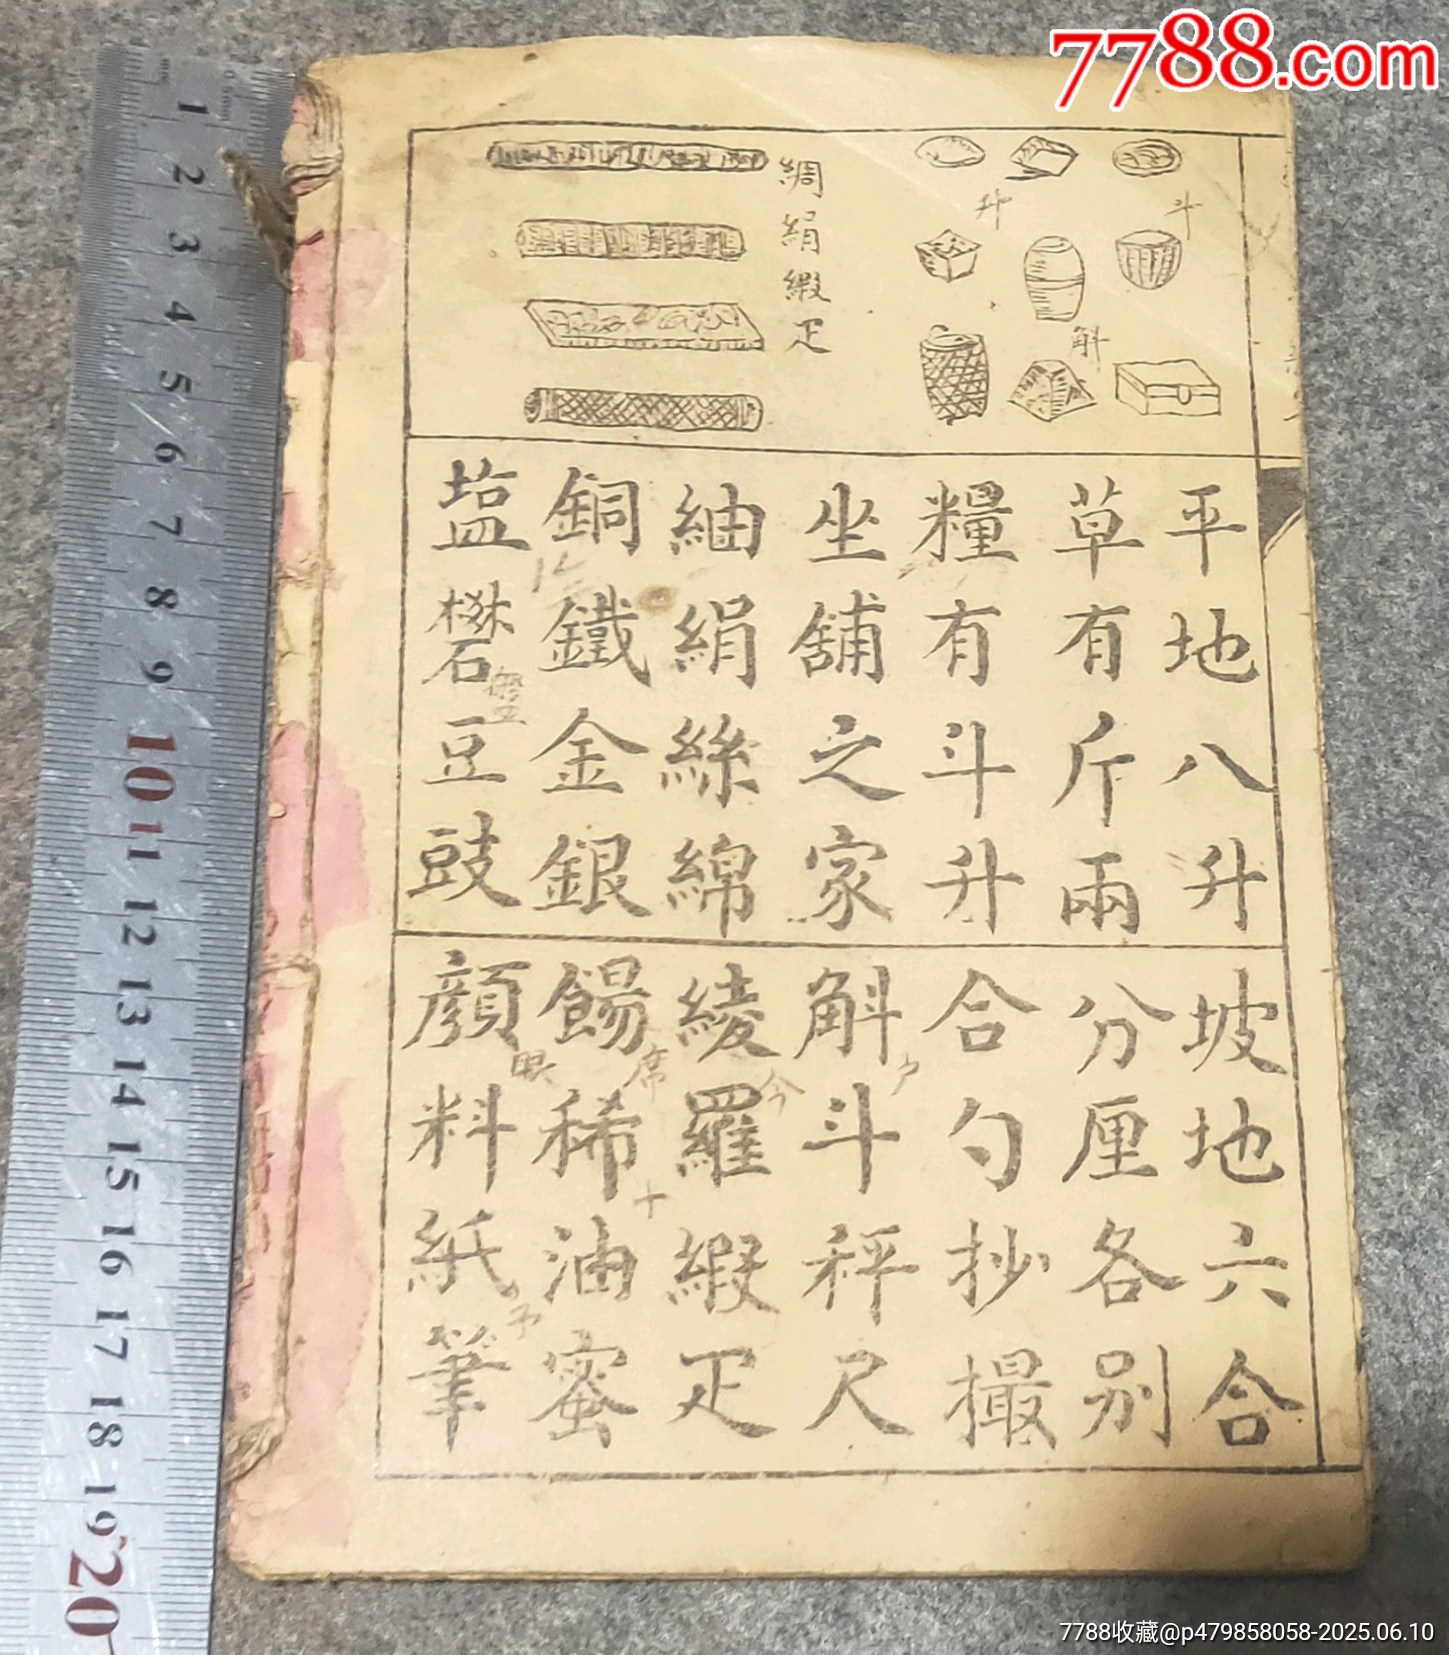 7788.com
斗
升
斛
綢絹緞疋
平地八升
坡地六合
草有斤兩
分厘各別
糧有斗升
合勺抄撮
坐舖之家
斛斗秤尺
紬絹絲綿
綾羅緞疋
銅鐵金銀
餳稀油蜜
塩礬豆豉
顏料紙筆
1 2 3 4 5 6 7 8 9 10 11 12 13 14 15 16 17 18 19 20
7788收藏@p479858058-2025.06.10